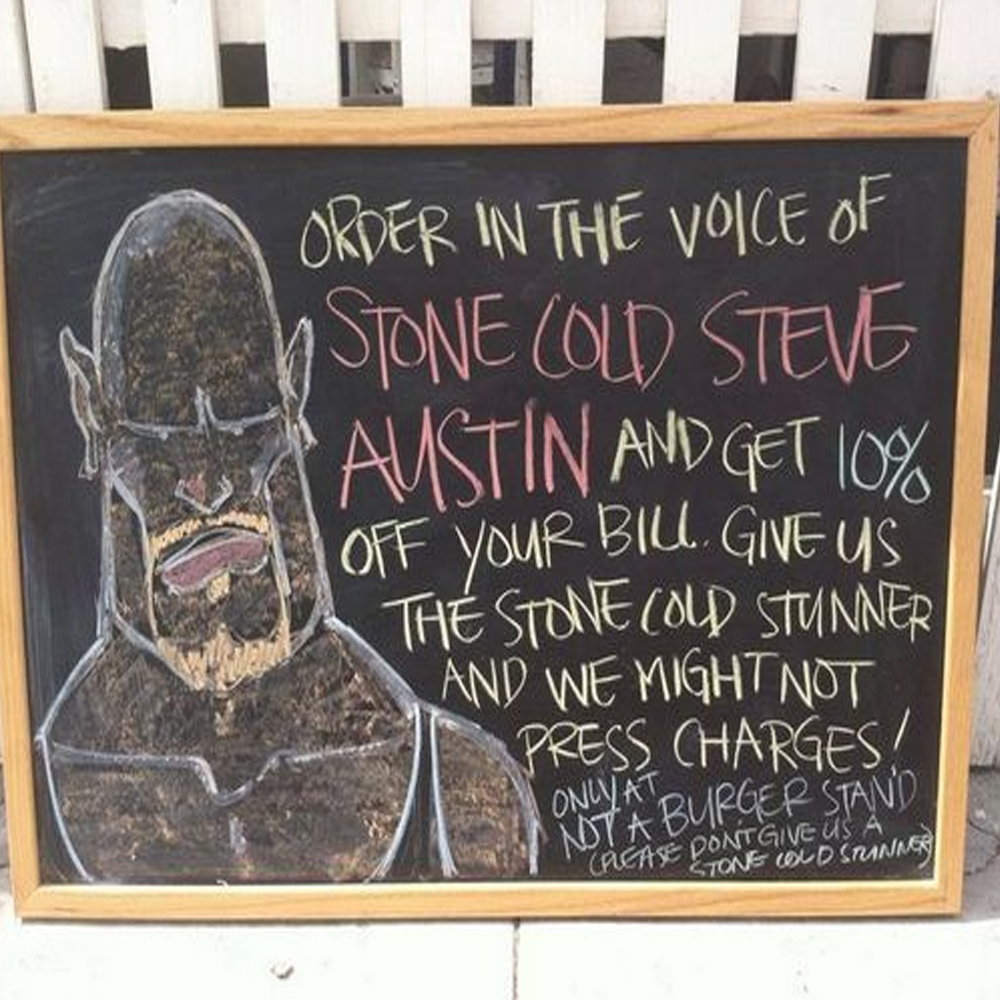 ORDER IN THE VOICE OF
STONE COLD STEVE
AUSTIN AND GET 10%
OFF YOUR BILL. GIVE US
THE STONE COLD STUNNER
AND WE MIGHT NOT
PRESS CHARGES!
ONLY AT
NOT A BURGER STAND
(PLEASE DON'T GIVE US A
STONE COLD STUNNER)